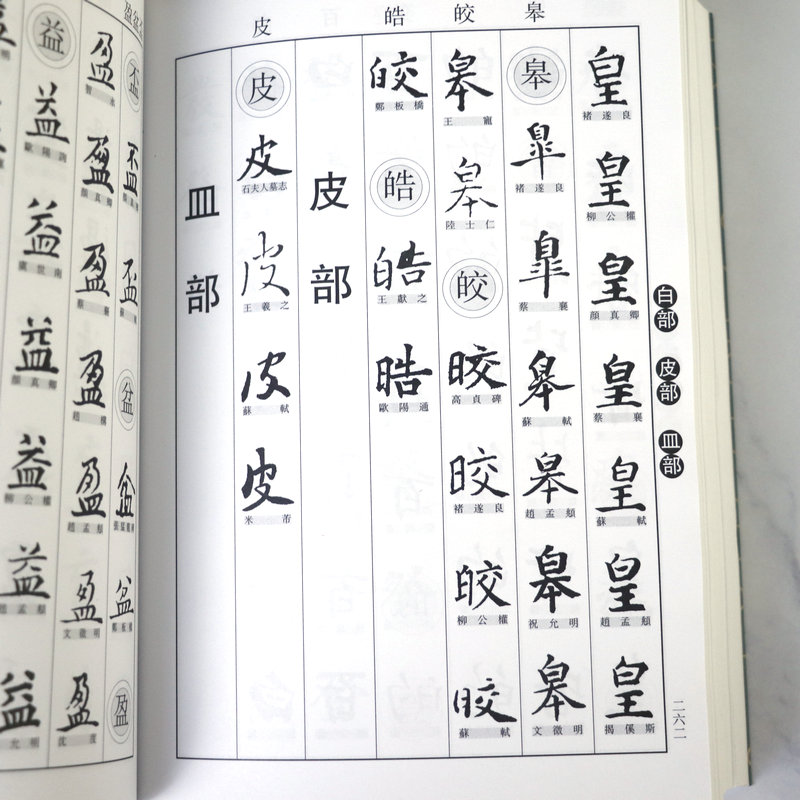 皋 皎 皓 皮
白部
皮部
皿部
二六二
皇
褚遂良
皇
柳公權
皇
顔真卿
皇
蔡襄
皇
蘇軾
皇
趙孟頫
皇
揭傒斯
皋
皋
褚遂良
皋
蔡襄
皋
蘇軾
皋
趙孟頫
皋
祝允明
皋
文徵明
皋
王寵
皋
陸士仁
皎
皎
高貞碑
皎
褚遂良
皎
柳公權
皎
蘇軾
皎
鄭板橋
皓
皓
王獻之
皓
歐陽通
皮部
皮
皮
石夫人墓志
皮
王羲之
皮
蘇軾
皮
米芾
皿部
盃
盃
顔真卿
盃
蘇軾
盆
盆
張猛龍碑
盆
鄭板橋
盈
盈
智永
盈
顔真卿
盈
蔡襄
盈
趙構
盈
趙孟頫
盈
文徵明
盈
沈度
益
益
歐陽詢
益
虞世南
益
顔真卿
益
柳公權
益
趙孟頫
益
允明